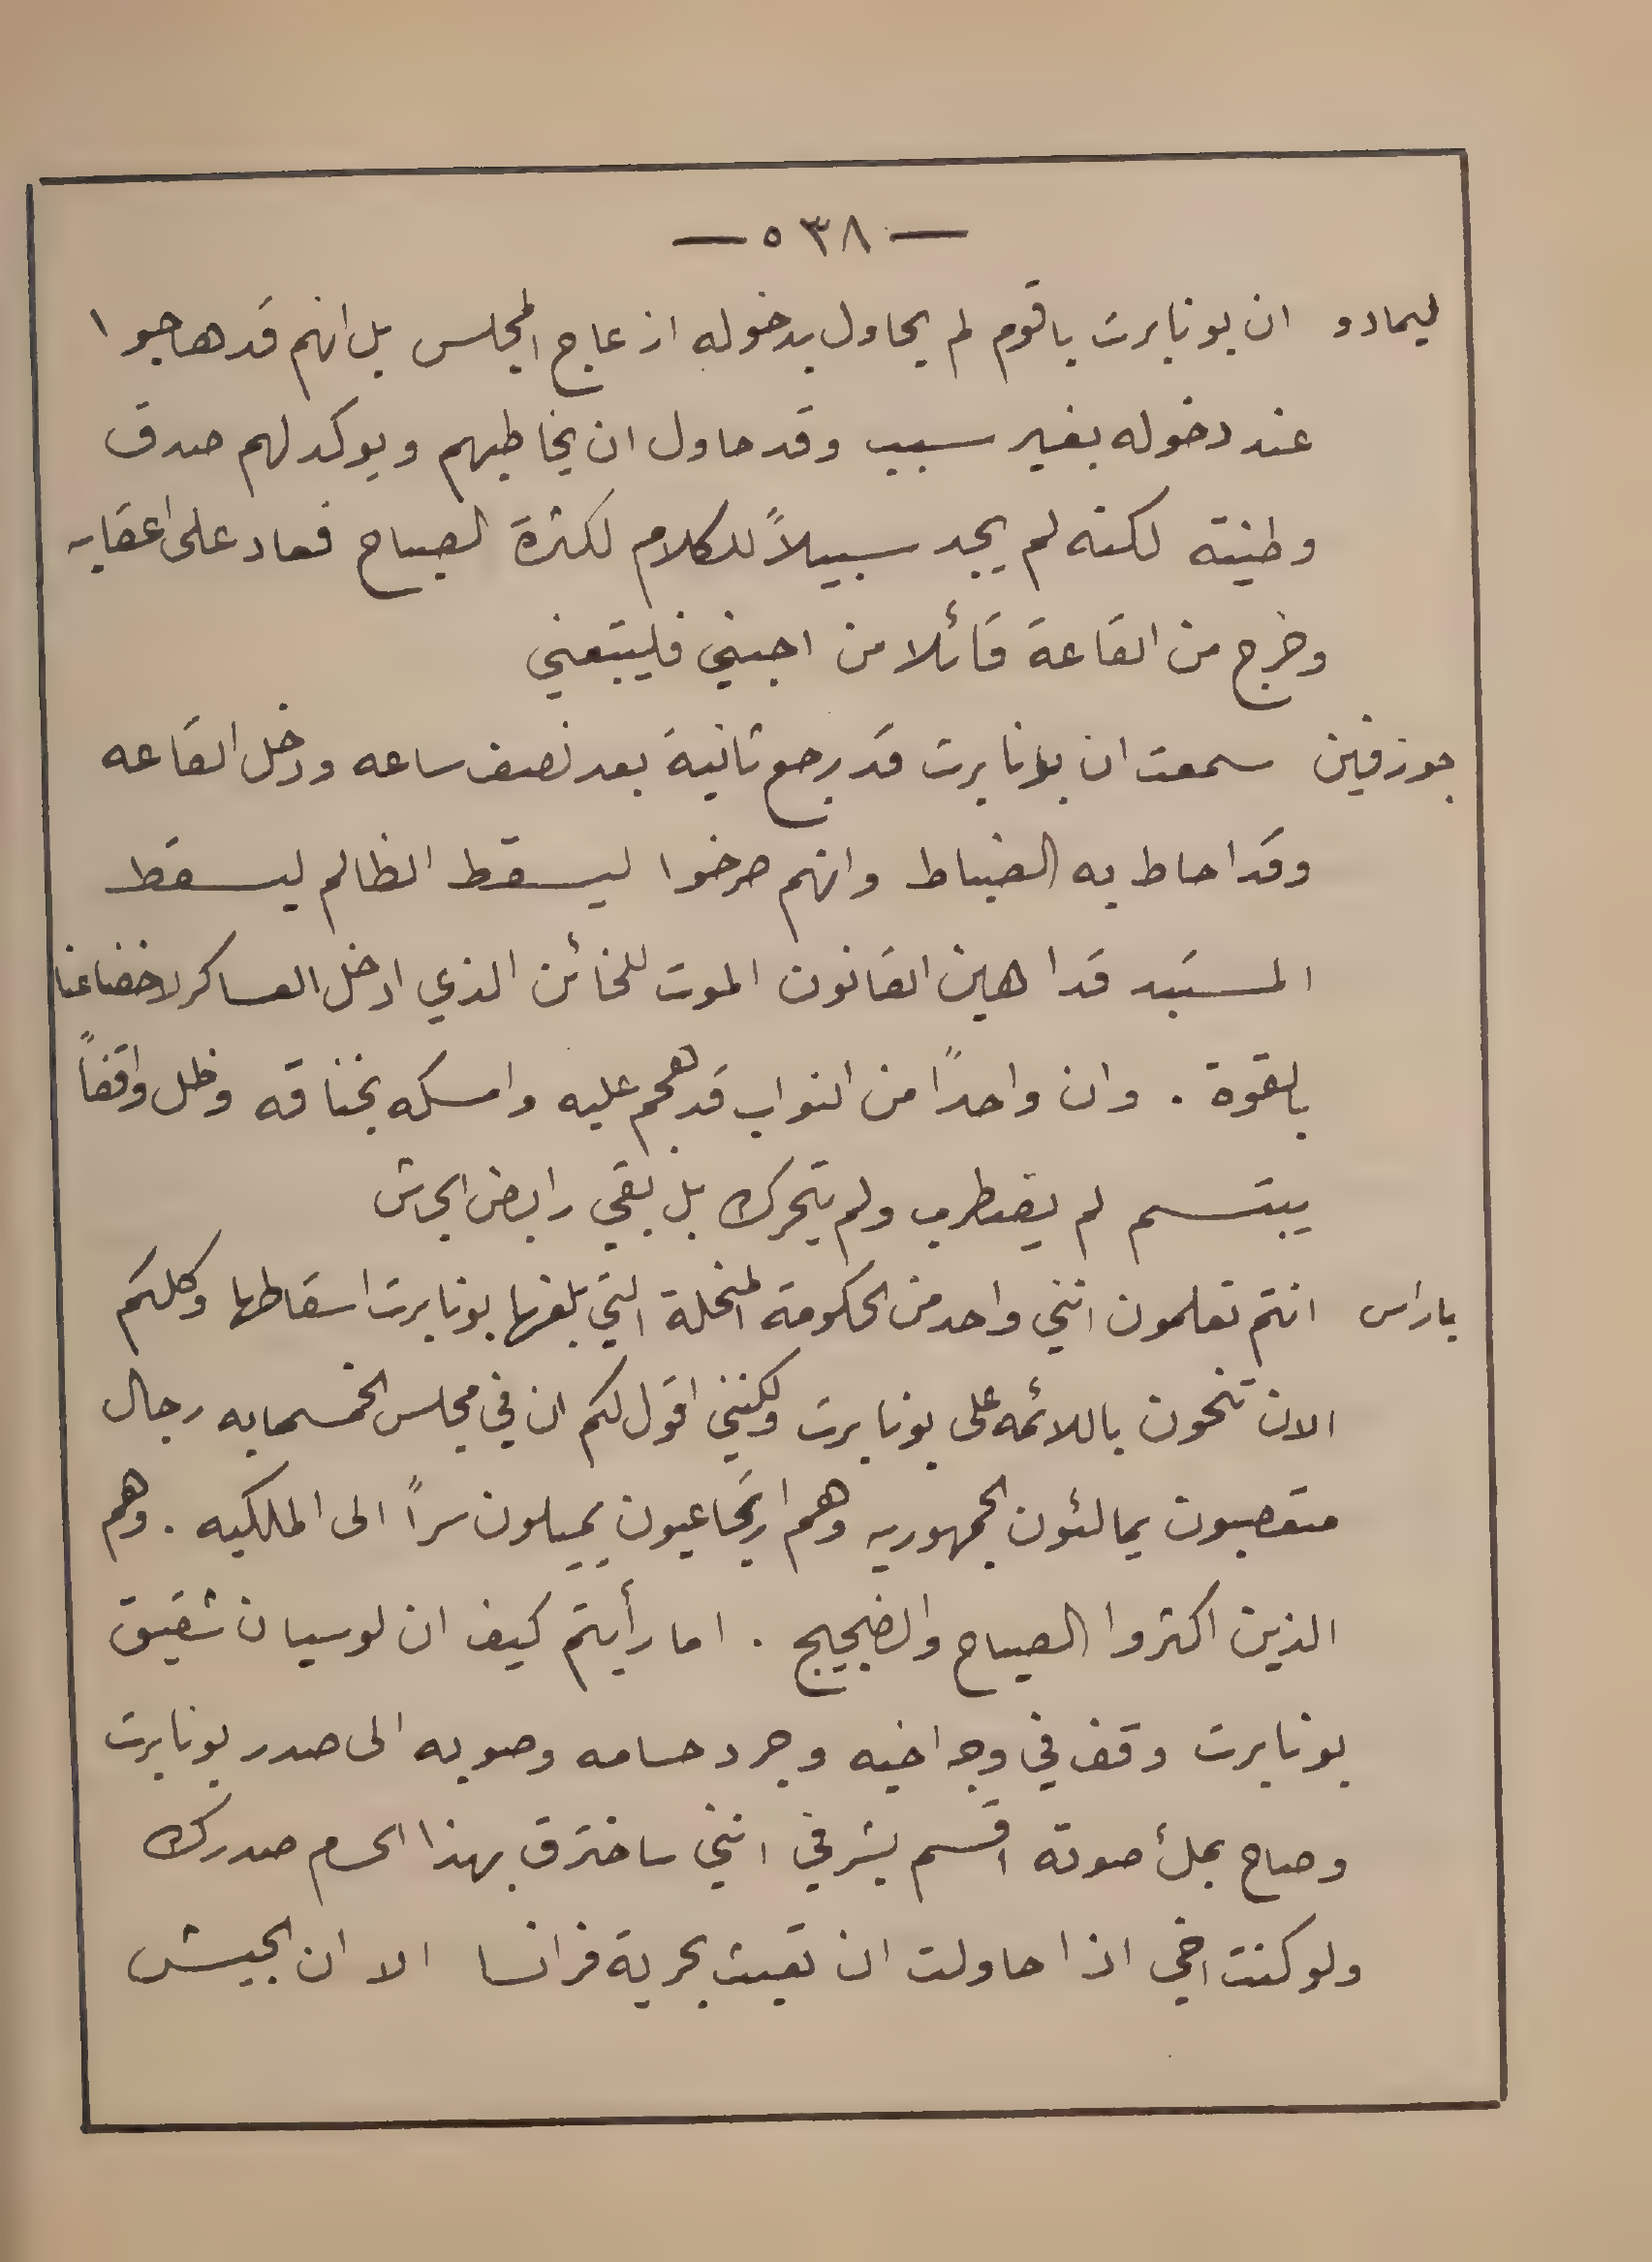 — ٥٣٨ —
ليمادو ان بونابرت ياقوم لم يحاول بدخوله ازعاج المجلس بل انهم قد هاجوا
عند دخوله بغير سبب وقد حاول ان يخاطبهم ويوكد لهم صدق
وطنيته لكنه لم يجد سبيلاً للكلام لكثرة الصياح فعاد على اعقابه
وخرج من القاعة قائلا من احبني فليتبعني
جوزفين سمعت ان بونابرت قد رجع ثانية بعد نصف ساعه ودخل القاعه
وقد احاط به الضباط وانهم صرخوا ليسقط الظالم ليسقط
المستبد قد اهين القانون الموت للخائن الذي ادخل العساكر لاخضاعنا
بالقوة . وان واحداً من النواب قد هجم عليه وامسكه بخناقه وظل واقفاً
يبتسم لم يضطرب ولم يتحرك بل بقي رابض الجاش
باراس انتم تعلمون انني واحد من الحكومة المنحلة التي بلغها بونابرت اسقاطها وكلكم
الان تنحون باللائمه على بونابرت ولكنني اقول لكم ان في مجلس الخمسمايه رجال
متعصبون يمالئون الجمهوريه وهم ارتجاعيون يميلون سراً الى الملكيه . وهم
الذين اكثروا الصياح والضجيج . اما رأيتم كيف ان لوسيان شقيق
بونابرت وقف في وجه اخيه وجرد حسامه وصوبه الى صدر بونابرت
وصاح بملأ صوته اقسم بشرفي انني ساخترق بهذا الحسام صدرك
ولو كنت اخي اذا حاولت ان تعبث بحرية فرانسا الا ان الجيش